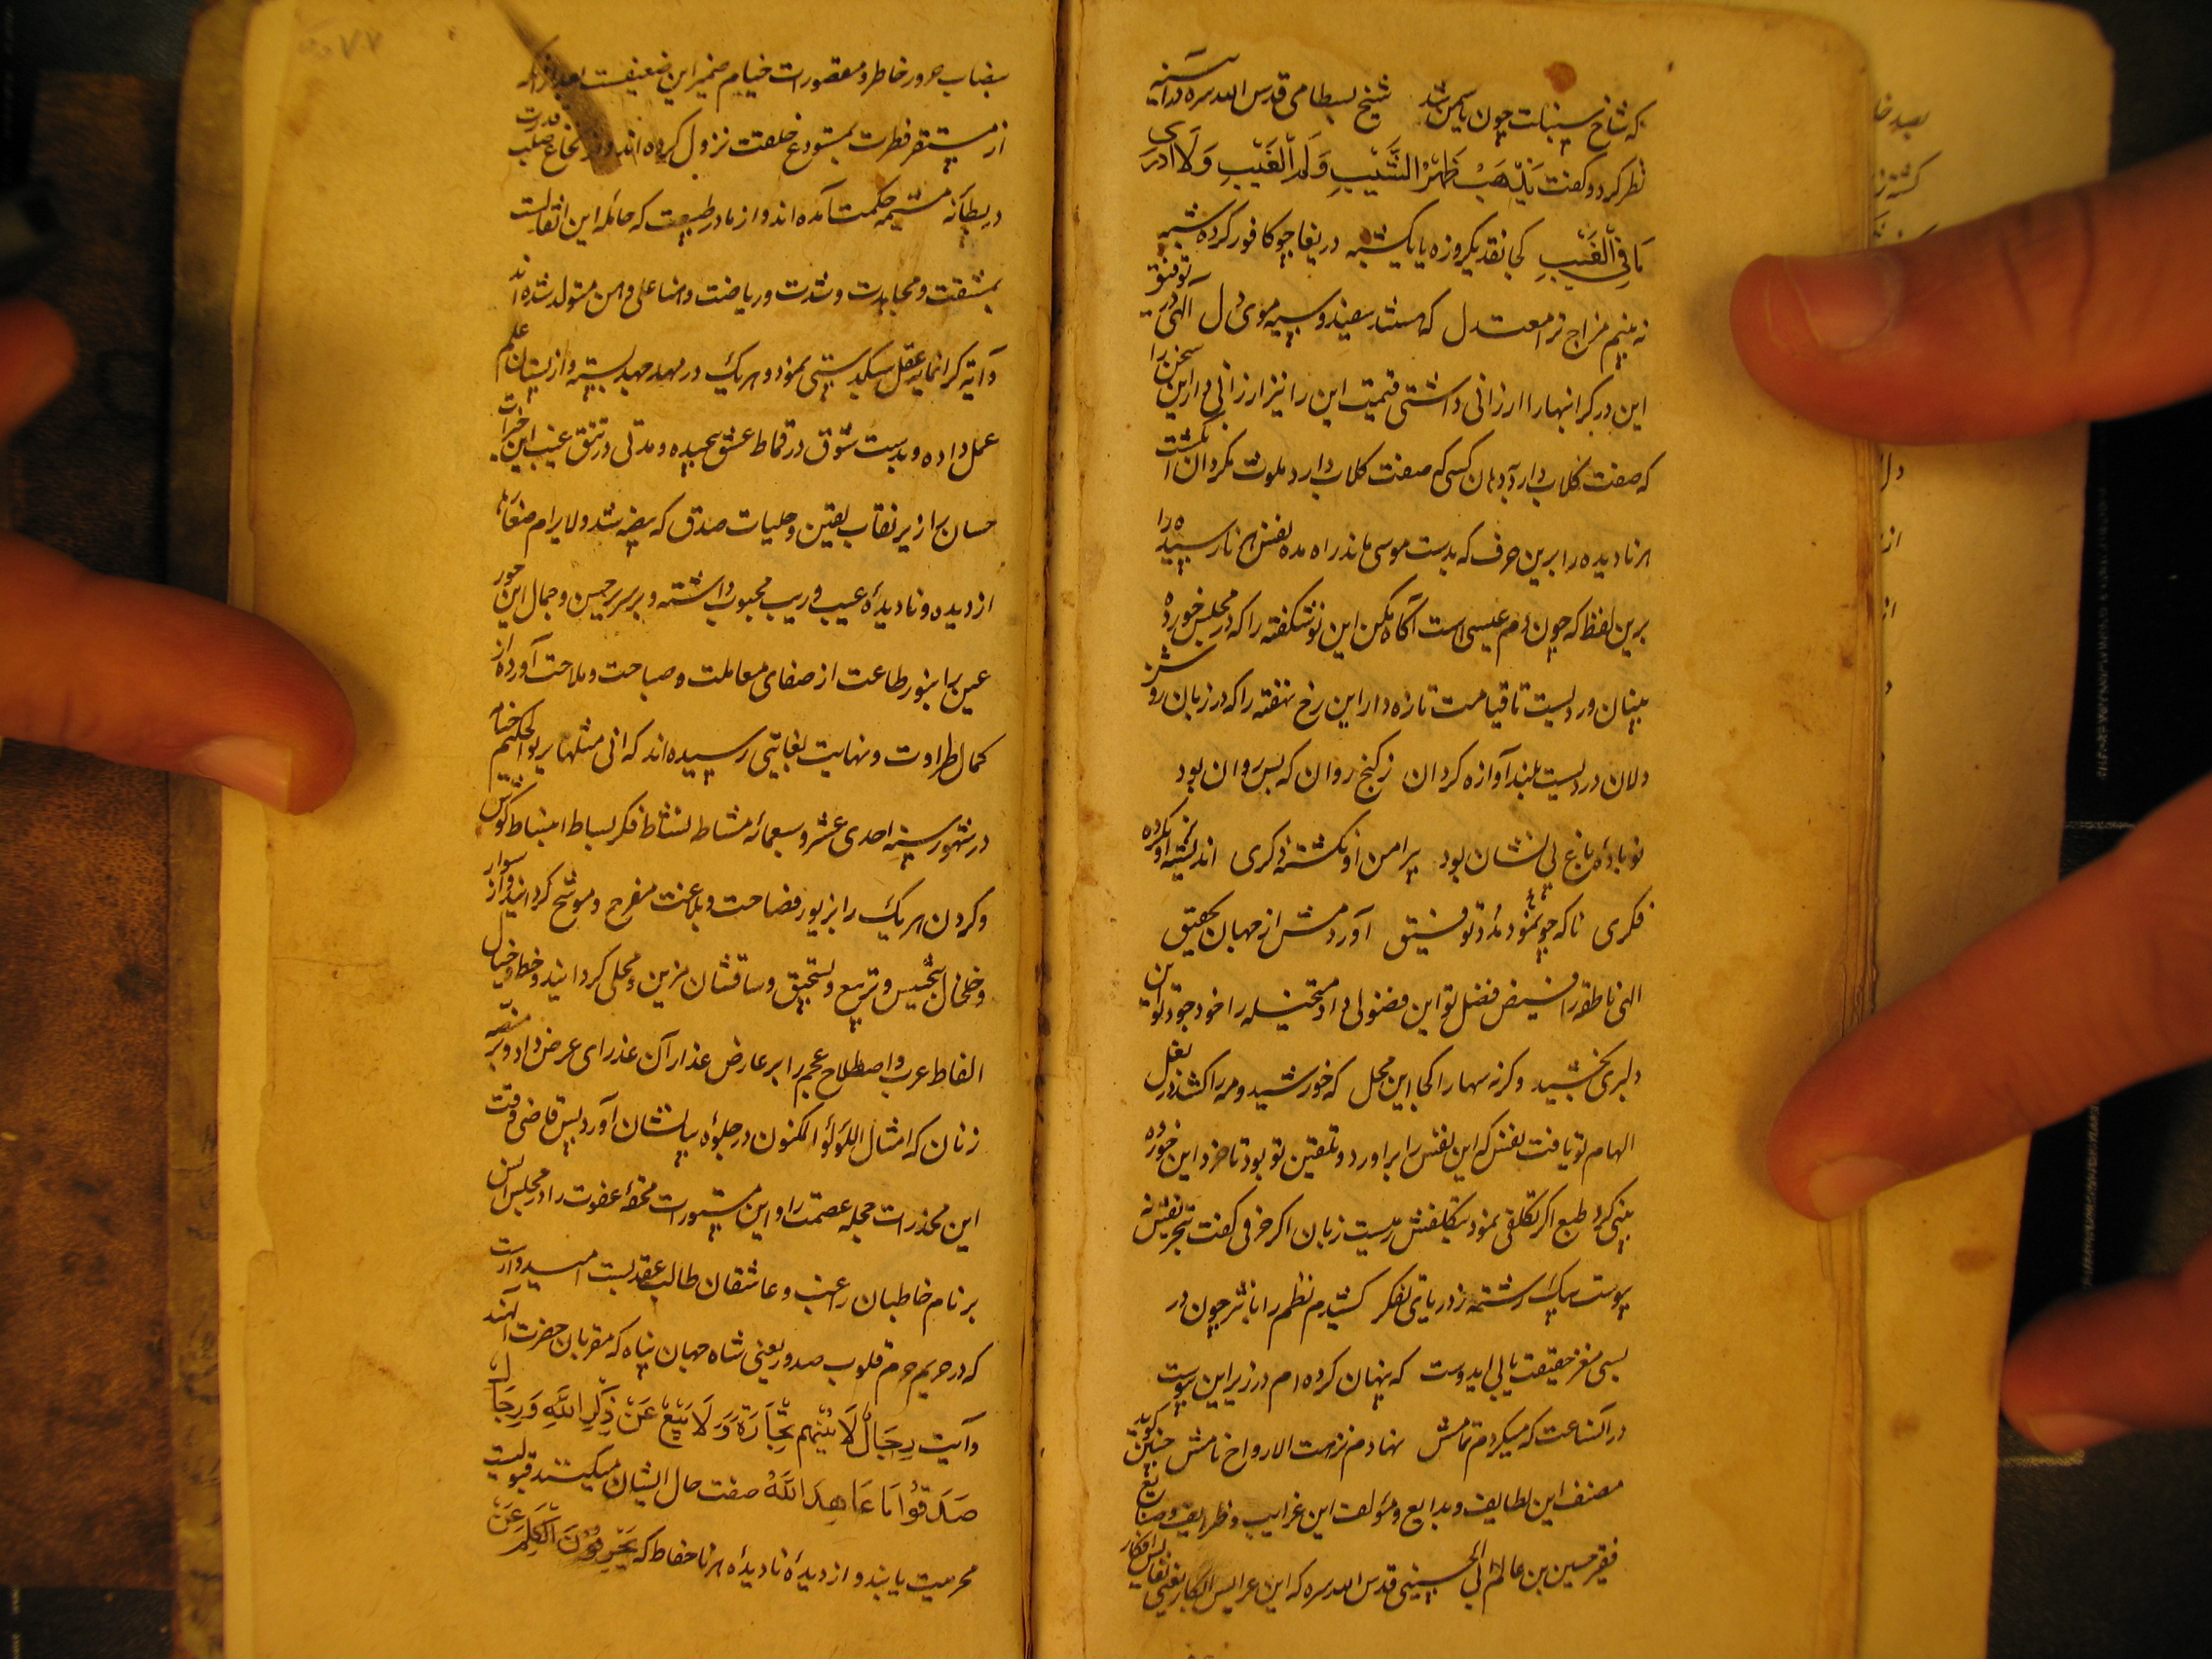 که شاخ سینات چون یاسمن شد شیخ بسطامی قدس الله سره در آینه
نظر کرد و گفت یذهب ظهر الشیب و لم الغیب و لا ادری
ما فی الغیب کجا نقد یکروزه یا یکشبه دریغا چو کافور کرده شبه
نه بینم مزاج ترا معتدل که هست سفید و سیه موی دل الهی در توفیق
این در گرانبها را ارزانی داشتی قیمت این را نیز ارزانی دار این سخن را
که صفت گلاب دارد بدان کسی که صفت کلاب دارد ملوث مگردان انگشت
هر نادیده را برین حرف که بدست موسی ماند راه مده نفس هر نارسیده را
برین لفظ که چون دم عیسی است آگاه مکن این نوشکفته را که در مجلس خورده
بینان وردیست تا قیامت تازه دار این رخ نهفته را که در زبان روشن
دلان دردیست بلند آوازه گردان ز گنج روان که بس روان بود
نوباده باغ بی نشان بود پیرامن او نگشته ذکری اندیشه او نکرده
فکری ناگه چو نمود مدد توفیق آوردمش از جهان تحقیق
الهی ناطقه را فیض فضل تو این فضولی داد متخیله را خود جود تو این
دلبری بخشید وگرنه سها را کجا این محل که خورشید و مه را کشد در بغل
الهام تو یافت نفس که این نفس را برآورد و تلقین تو بود تا خرد این خورده
بینی کرد طبع اگر تکلفی نمود بتکلفش مرسیت زبان اگر حرفی گفت بتحریفش نه
پیوست بیک رشته ز دریای تفکر کشیدم نظم را با نثر چون در
بسی مغز حقیقت یابی ای دوست که پنهان کرده ام در زیر این پوست
در آنساعت که میکردم تمامش نهادم نزهت الارواح نامش چنین گوید
مصنف این لطایف و بدایع و مؤلف این غرایب و ظرایف و صنایع
فقیر حسین بن عالم ابی الحسینی قدس الله سره که این عرایس ابکار یعنی نفایس افکار
خاطر و مقصورات خیام ضمیر این ضعیفست بعد از آنکه
از مستقر فطرت بمستودع خلقت نزول کرده اند و از نخاع صلب قدرت
در بطانه مشیمه حکمت آمده اند و از مادر طبیعت که حامله این اثقالست
بمشقت و مجاهدت و شدت و ریاضت وهنا علی وهن متولد شده اند
و دایه گرانمایه عقل سبکدستی نمود و هر یک را در مهد عهد بسته و از پستان علم
عمل داده و بدست شوق در قماط عشق پیچیده و مدتی در تتق غیب این خیرات
حسان را زیر نقاب یقین و حلیات صدق که
از دیده و نادیده عیب و ریب محجوب داشته و بر سریر حسن و جمال این حور
عین را بنور طاعت از صفای معاملت و صباحت و ملاحت آورده از
کمال طراوت و نهایت بغایتی رسیده اند که
در شهور سنه احدی عشر و سبعمائه مشاط نشاط فکر بساط انبساط
و گردن هر یک را بزیور فصاحت و بلاغت مفرح و موشح گردانید و از سوار
و خلخال تجنیس و ترصیع و ساقشان مزین و محلی گردانید و خط و خیال
الفاظ عرب و اصطلاح عجم را بر عارض عذار آن عذرای عرض داد و بر منصه
زنان که امثال اللؤلؤ المکنون در جلوه بیاشان آورد پس قاضی وقت
این مخدرات حجله عصمت را و این مستورات محفه عفوت را در مجلس انس
بر نام خاطبان راغب و عاشقان طالب عقد بست امیدوارست
که در حریم حرم قلوب صدور یعنی شاه جهان پناه که مقربان حضرت الهند
و آیت رجال لا تلهیهم تجارة و لا بیع عن ذکر الله و رجال
صدقوا ما عاهد الله صفت حال ایشان میکند قبولیت
محرمیت یابند و از دیده نادیده هر ناحفاظ که یحرفون الکلم عن